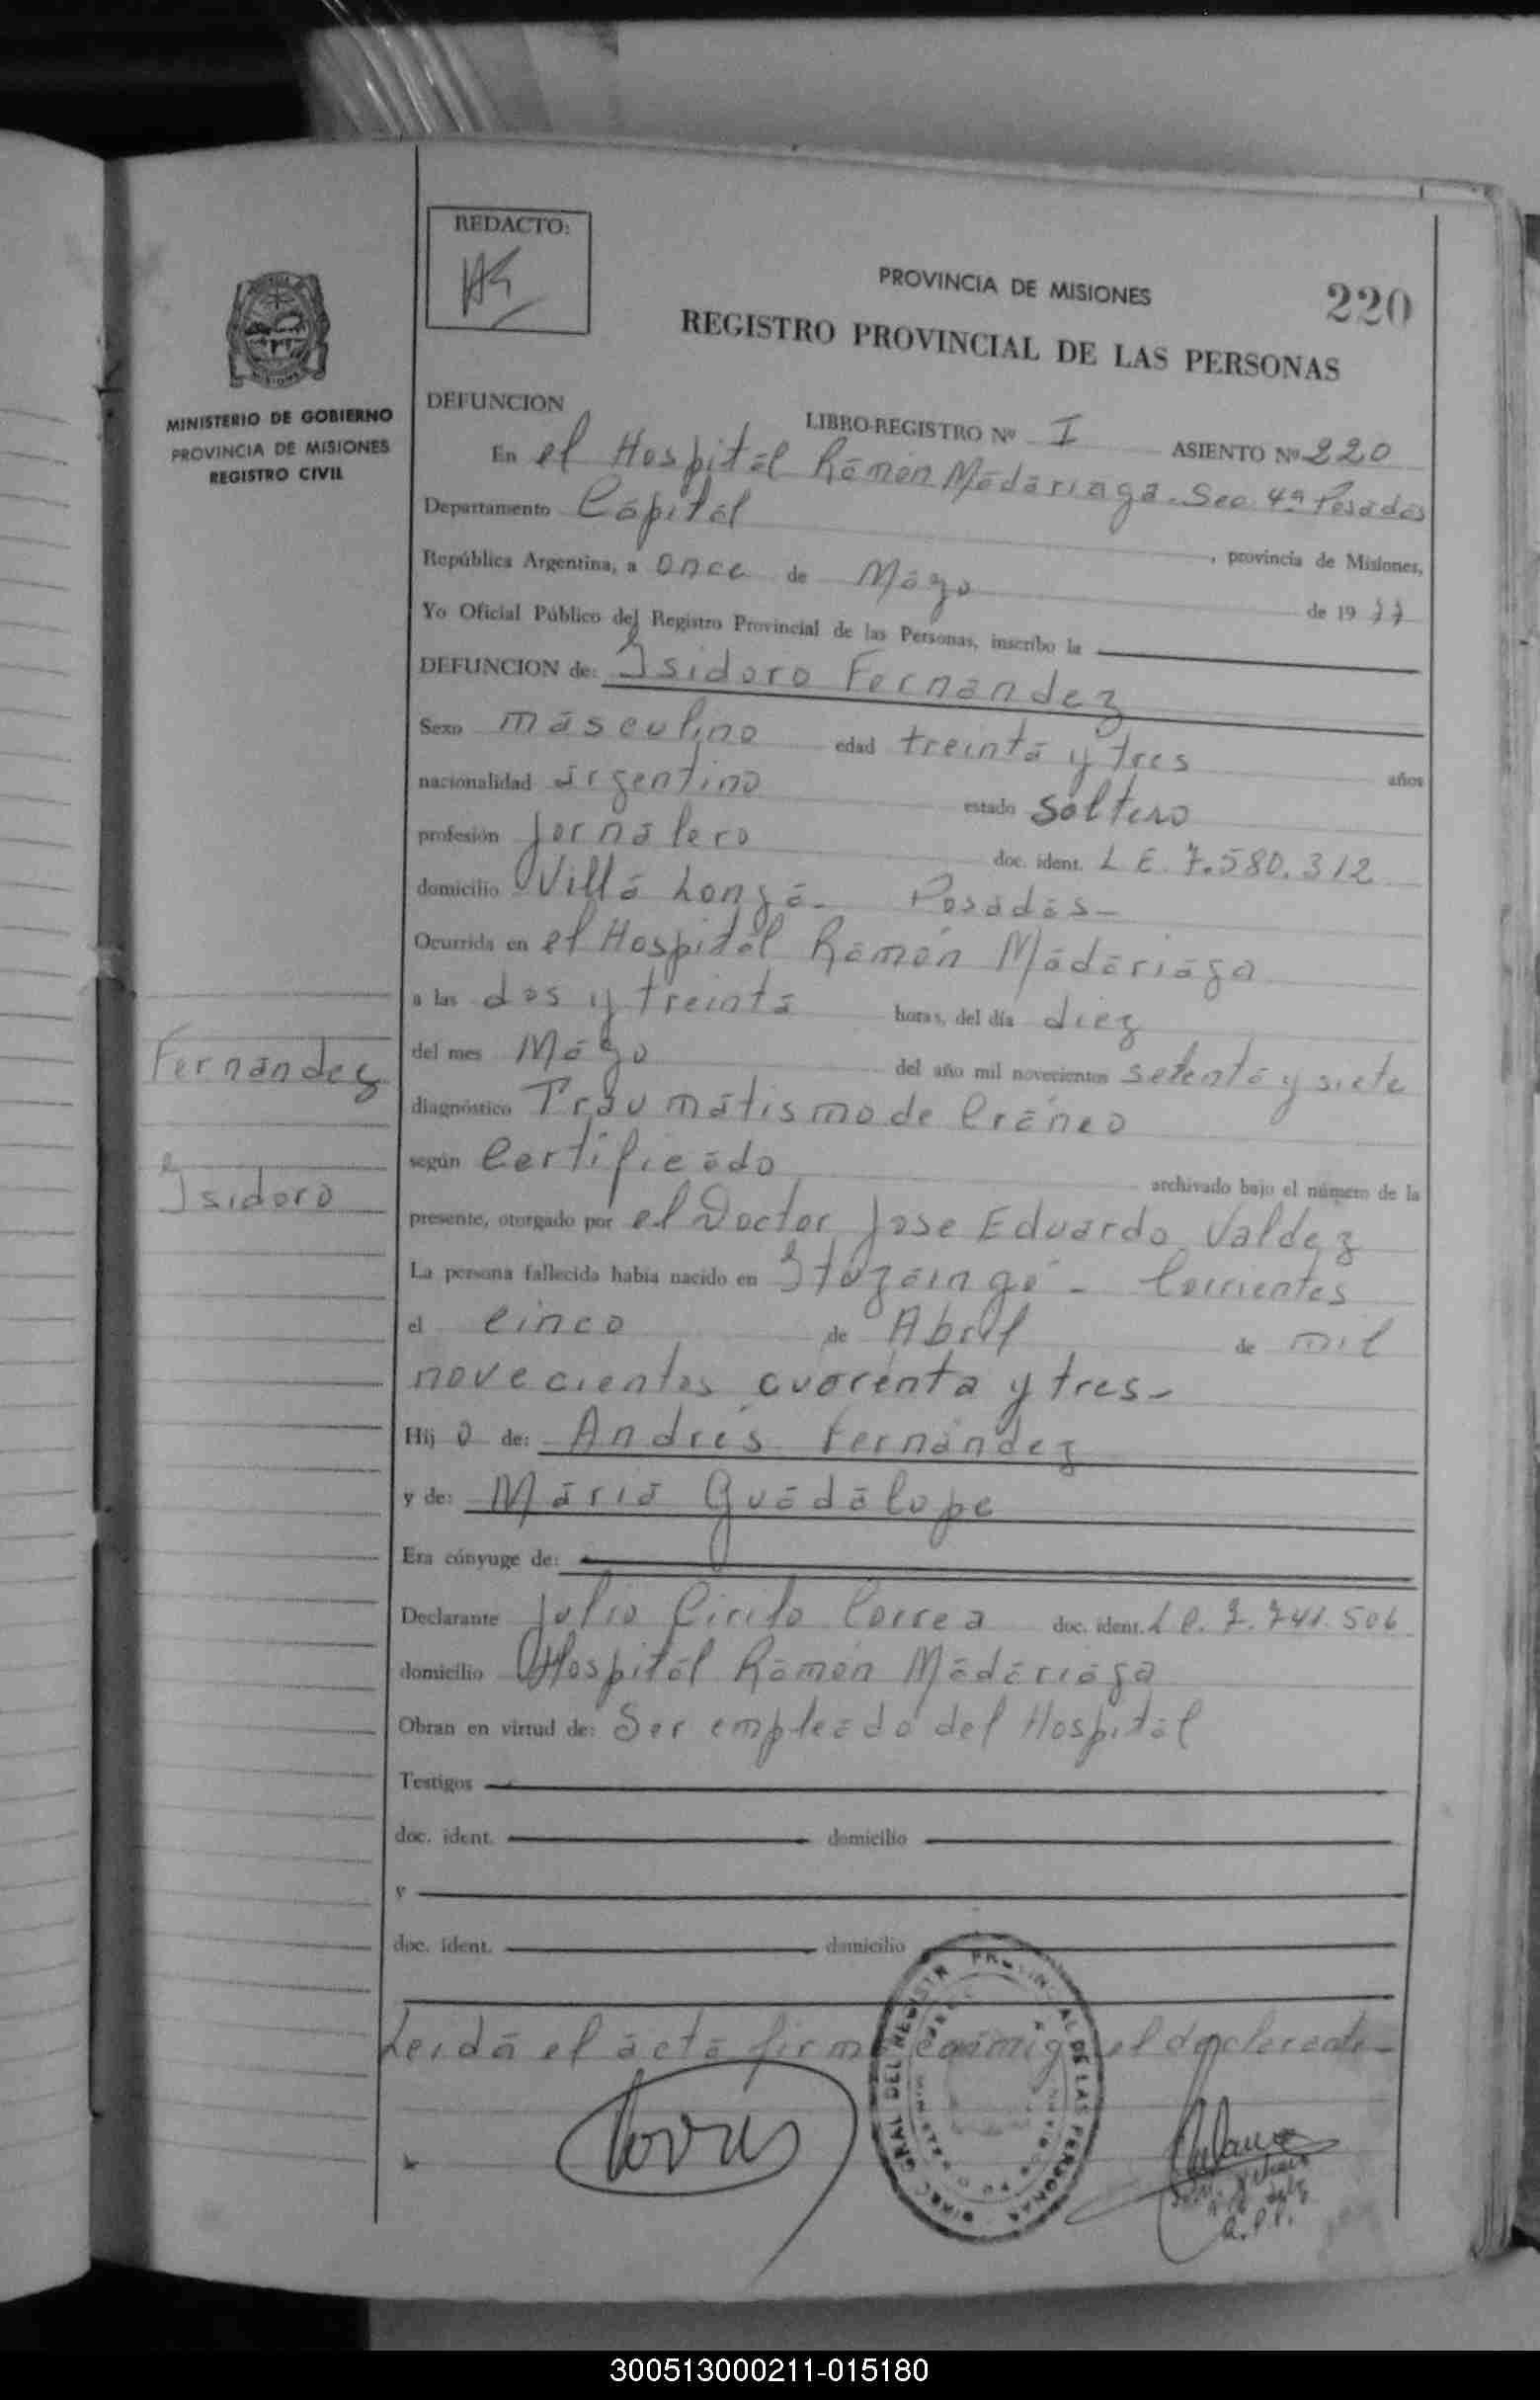 REDACTO:
PROVINCIA DE MISIONES
220
REGISTRO PROVINCIAL DE LAS PERSONAS
MINISTERIO DE GOBIERNO
PROVINCIA DE MISIONES
REGISTRO CIVIL
DEFUNCION LIBRO-REGISTRO Nº I ASIENTO Nº 220
En el Hospital Ramón Madariaga. Sec. 4ª Posadas
Departamento Capital, provincia de Misiones,
República Argentina, a once de Mayo de 1977
Yo Oficial Público del Registro Provincial de las Personas, inscribo la
DEFUNCION de: Isidoro Fernandez
Sexo masculino edad treinta y tres años
nacionalidad argentino estado soltero
profesión jornalero doc. ident. L E. 7.580.312
domicilio Villa Longa - Posadas -
Ocurrida en el Hospital Ramón Madariaga
a las dos y treinta horas, del día diez
del mes Mayo del año mil novecientos setenta y siete
diagnóstico Traumatismo de Cráneo
según Certificado archivado bajo el número de la
presente, otorgado por el Doctor Jose Eduardo Valdez
La persona fallecida había nacido en Ituzaingó - Corrientes
el cinco de Abril de mil
novecientos cuarenta y tres -
Hijo de: Andrés Fernandez
y de: María Guadalupe
Era cónyuge de:
Declarante Julio Cirilo Correa doc. ident. L e. 7.741.506
domicilio Hospital Ramón Madariaga
Obran en virtud de: Ser empleado del Hospital
Testigos
doc. ident. domicilio
y
doc. ident. domicilio
Leida el acta firma conmigo el declarante -
Fernandez
Isidoro
DIREC. GRAL. DEL REGISTR PROVINCIAL DE LAS PERSONAS
300513000211-015180